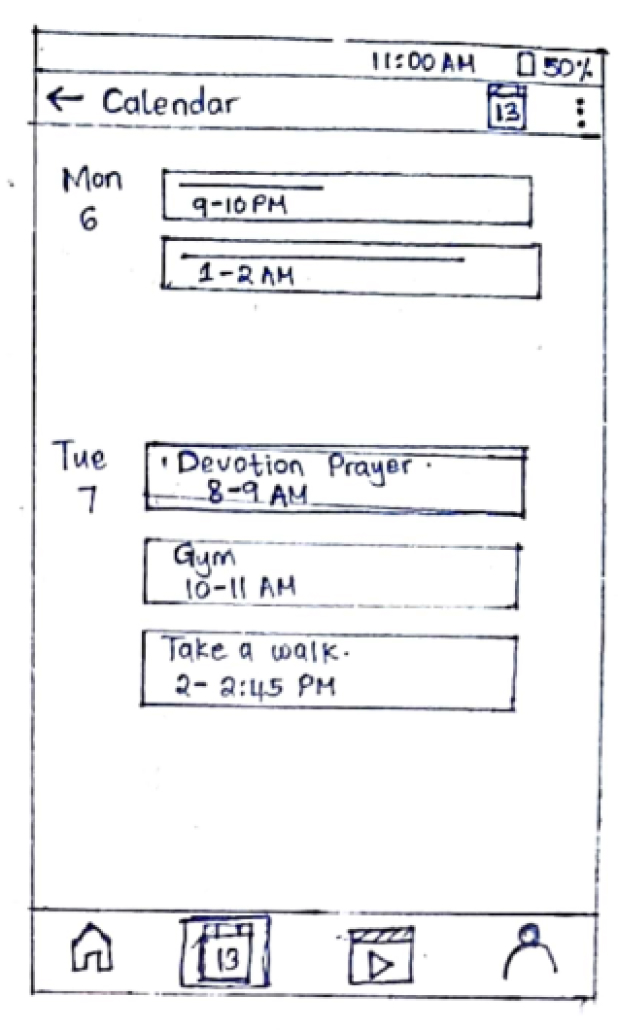 11:00 AM 50%
← Calendar 13
Mon
6
9-10 PM
1-2 AM
Tue
7
Devotion Prayer.
8-9 AM
Gym
10-11 AM
Take a walk.
2- 2:45 PM
13